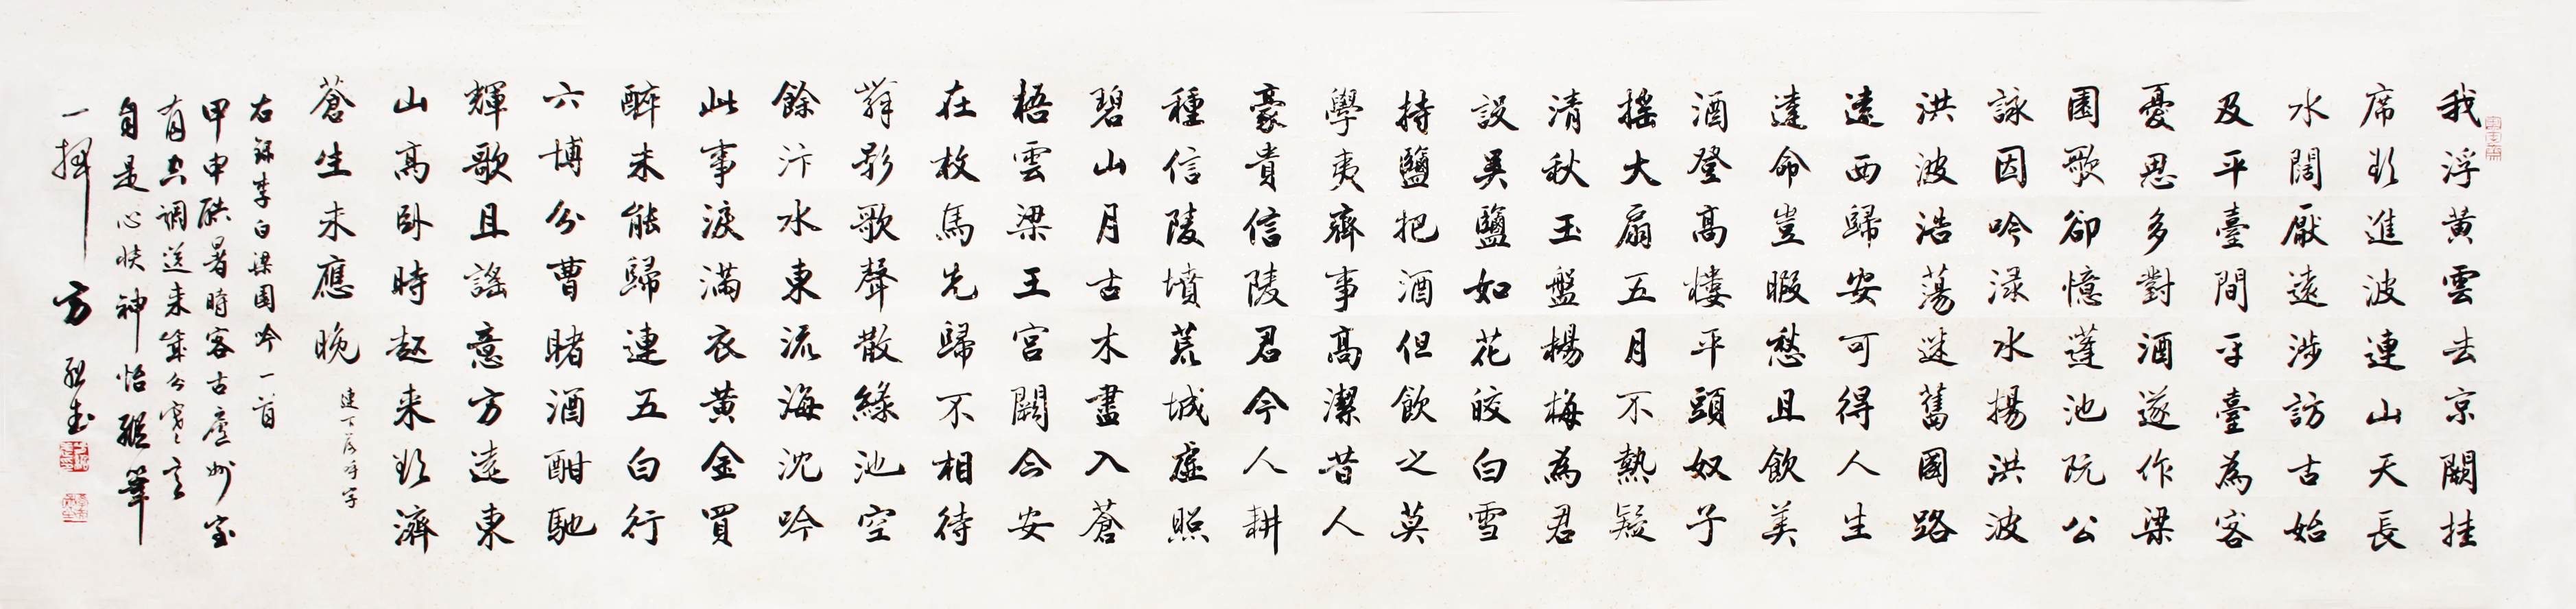 我浮黃雲去京闕挂
席欲進波連山天長
水闊厭遠涉訪古始
及平臺間平臺為客
憂思多對酒遂作梁
園歌卻憶蓬池阮公
詠因吟淥水揚洪波
洪波浩蕩迷舊國路
遠西歸安可得人生
達命豈暇愁且飲美
酒登高樓平頭奴子
搖大扇五月不熱疑
清秋玉盤楊梅為君
設吳鹽如花皎白雪
持鹽把酒但飲之莫
學夷齊事高潔昔人
豪貴信陵君今人耕
種信陵墳荒城虛照
碧山月古木盡入蒼
梧雲梁王宮闕今安
在枚馬先歸不相待
舞影歌聲散綠池空
餘汴水東流海沈吟
此事淚滿衣黃金買
醉未能歸連五白行
六博分曹賭酒酣馳
輝歌且謠意方遠東
山高臥時起來欲濟
蒼生未應晚
連下落呼字
右錄李白梁園吟一首
甲申酷暑時客古廬州室
有空調送来
自是心快神怡縱筆
一揮 方